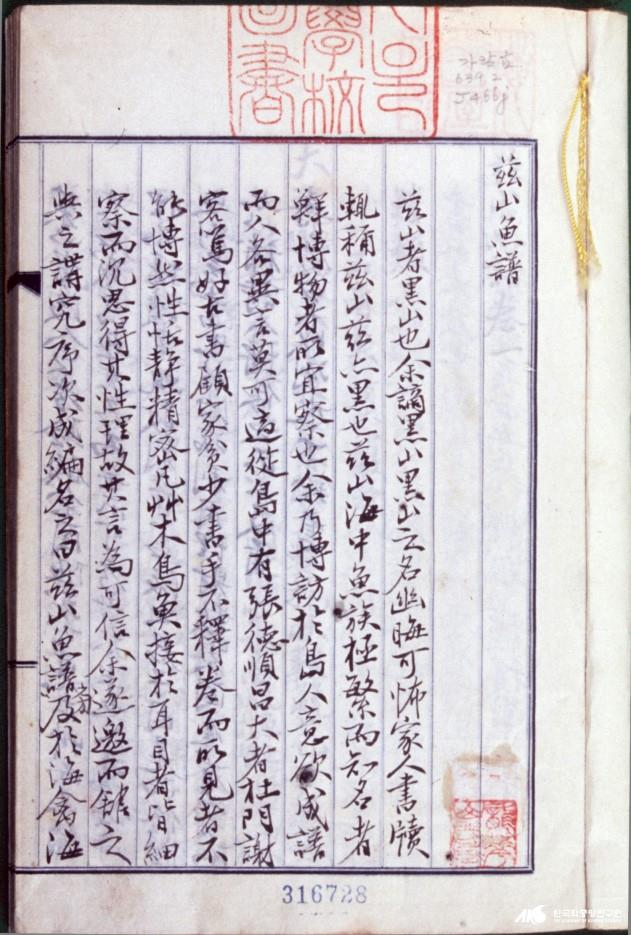 玆山魚譜
玆山者黑山也余謫黑山黑山之名幽晦可怖家人書牘
輒稱玆山玆亦黑也玆山海中魚族極繁而知名者
鮮博物者所宜察也余乃博訪於島人意欲成譜
而人各異言莫可適從島中有張德順昌大者杜門謝
客篤好古書顧家貧少書手不釋卷而所見者不
能博然性恬靜精密凡艸木鳥魚接於耳目者皆細
察而沉思得其性理故其言爲可信余遂邀而館之
與之講究序次成編名之曰玆山魚譜旁及於海禽海
學校
圖書
가람古
639.2
J466j
316728
한국학중앙연구원